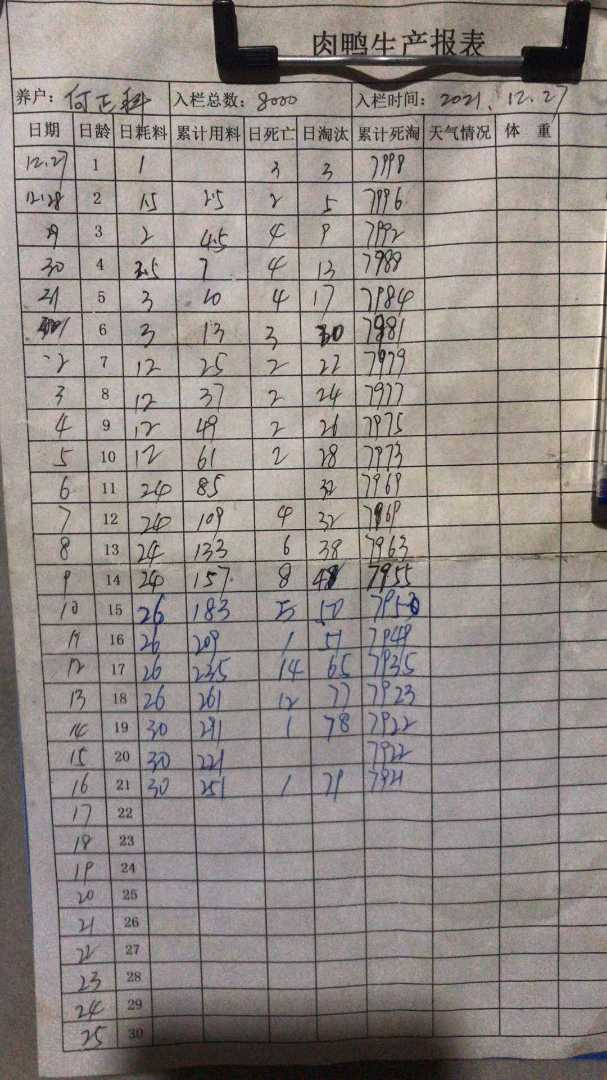 肉鸭生产报表
养户: 何正科 入栏总数: 8000 入栏时间: 2021.12.27
日期 日龄 日耗料 累计用料 日死亡 日淘汰 累计死淘 天气情况 体 重
12.27 1 1 3 3 7998
12.28 2 1.5 2.5 2 5 7996
29 3 2 4.5 4 9 7992
30 4 2.5 7 4 13 7988
31 5 3 10 4 17 7984
6 3 13 3 20 7981
2 7 12 25 2 22 7979
3 8 12 37 2 24 7977
4 9 12 49 2 26 7975
5 10 12 61 2 28 7973
6 11 24 85 32 7969
7 12 24 109 4 32 7969
8 13 24 133 6 38 7963
9 14 24 157 8 48 7955
10 15 26 183 5 50 7950
11 16 26 209 1 51 7949
12 17 26 235 14 65 7935
13 18 26 261 12 77 7923
14 19 30 291 1 78 7922
15 20 30 221 7922
16 21 30 251 1 79 7921
17 22
18 23
19 24
20 25
21 26
22 27
23 28
24 29
25 30